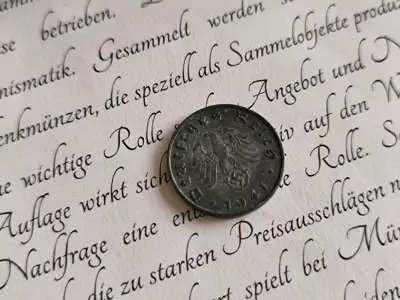 se betrieben.
Gesammelt werden
nismatik.
enkmünzen, die speziell als Sammelobjekte produz
ne wichtige Rolle Angebot und N
Auflage wirkt sich auf den W
Nachfrage eine Rolle. S
die zu starken Preisausschlägen n
spielt bei Mün
Deutsches Reich
1941